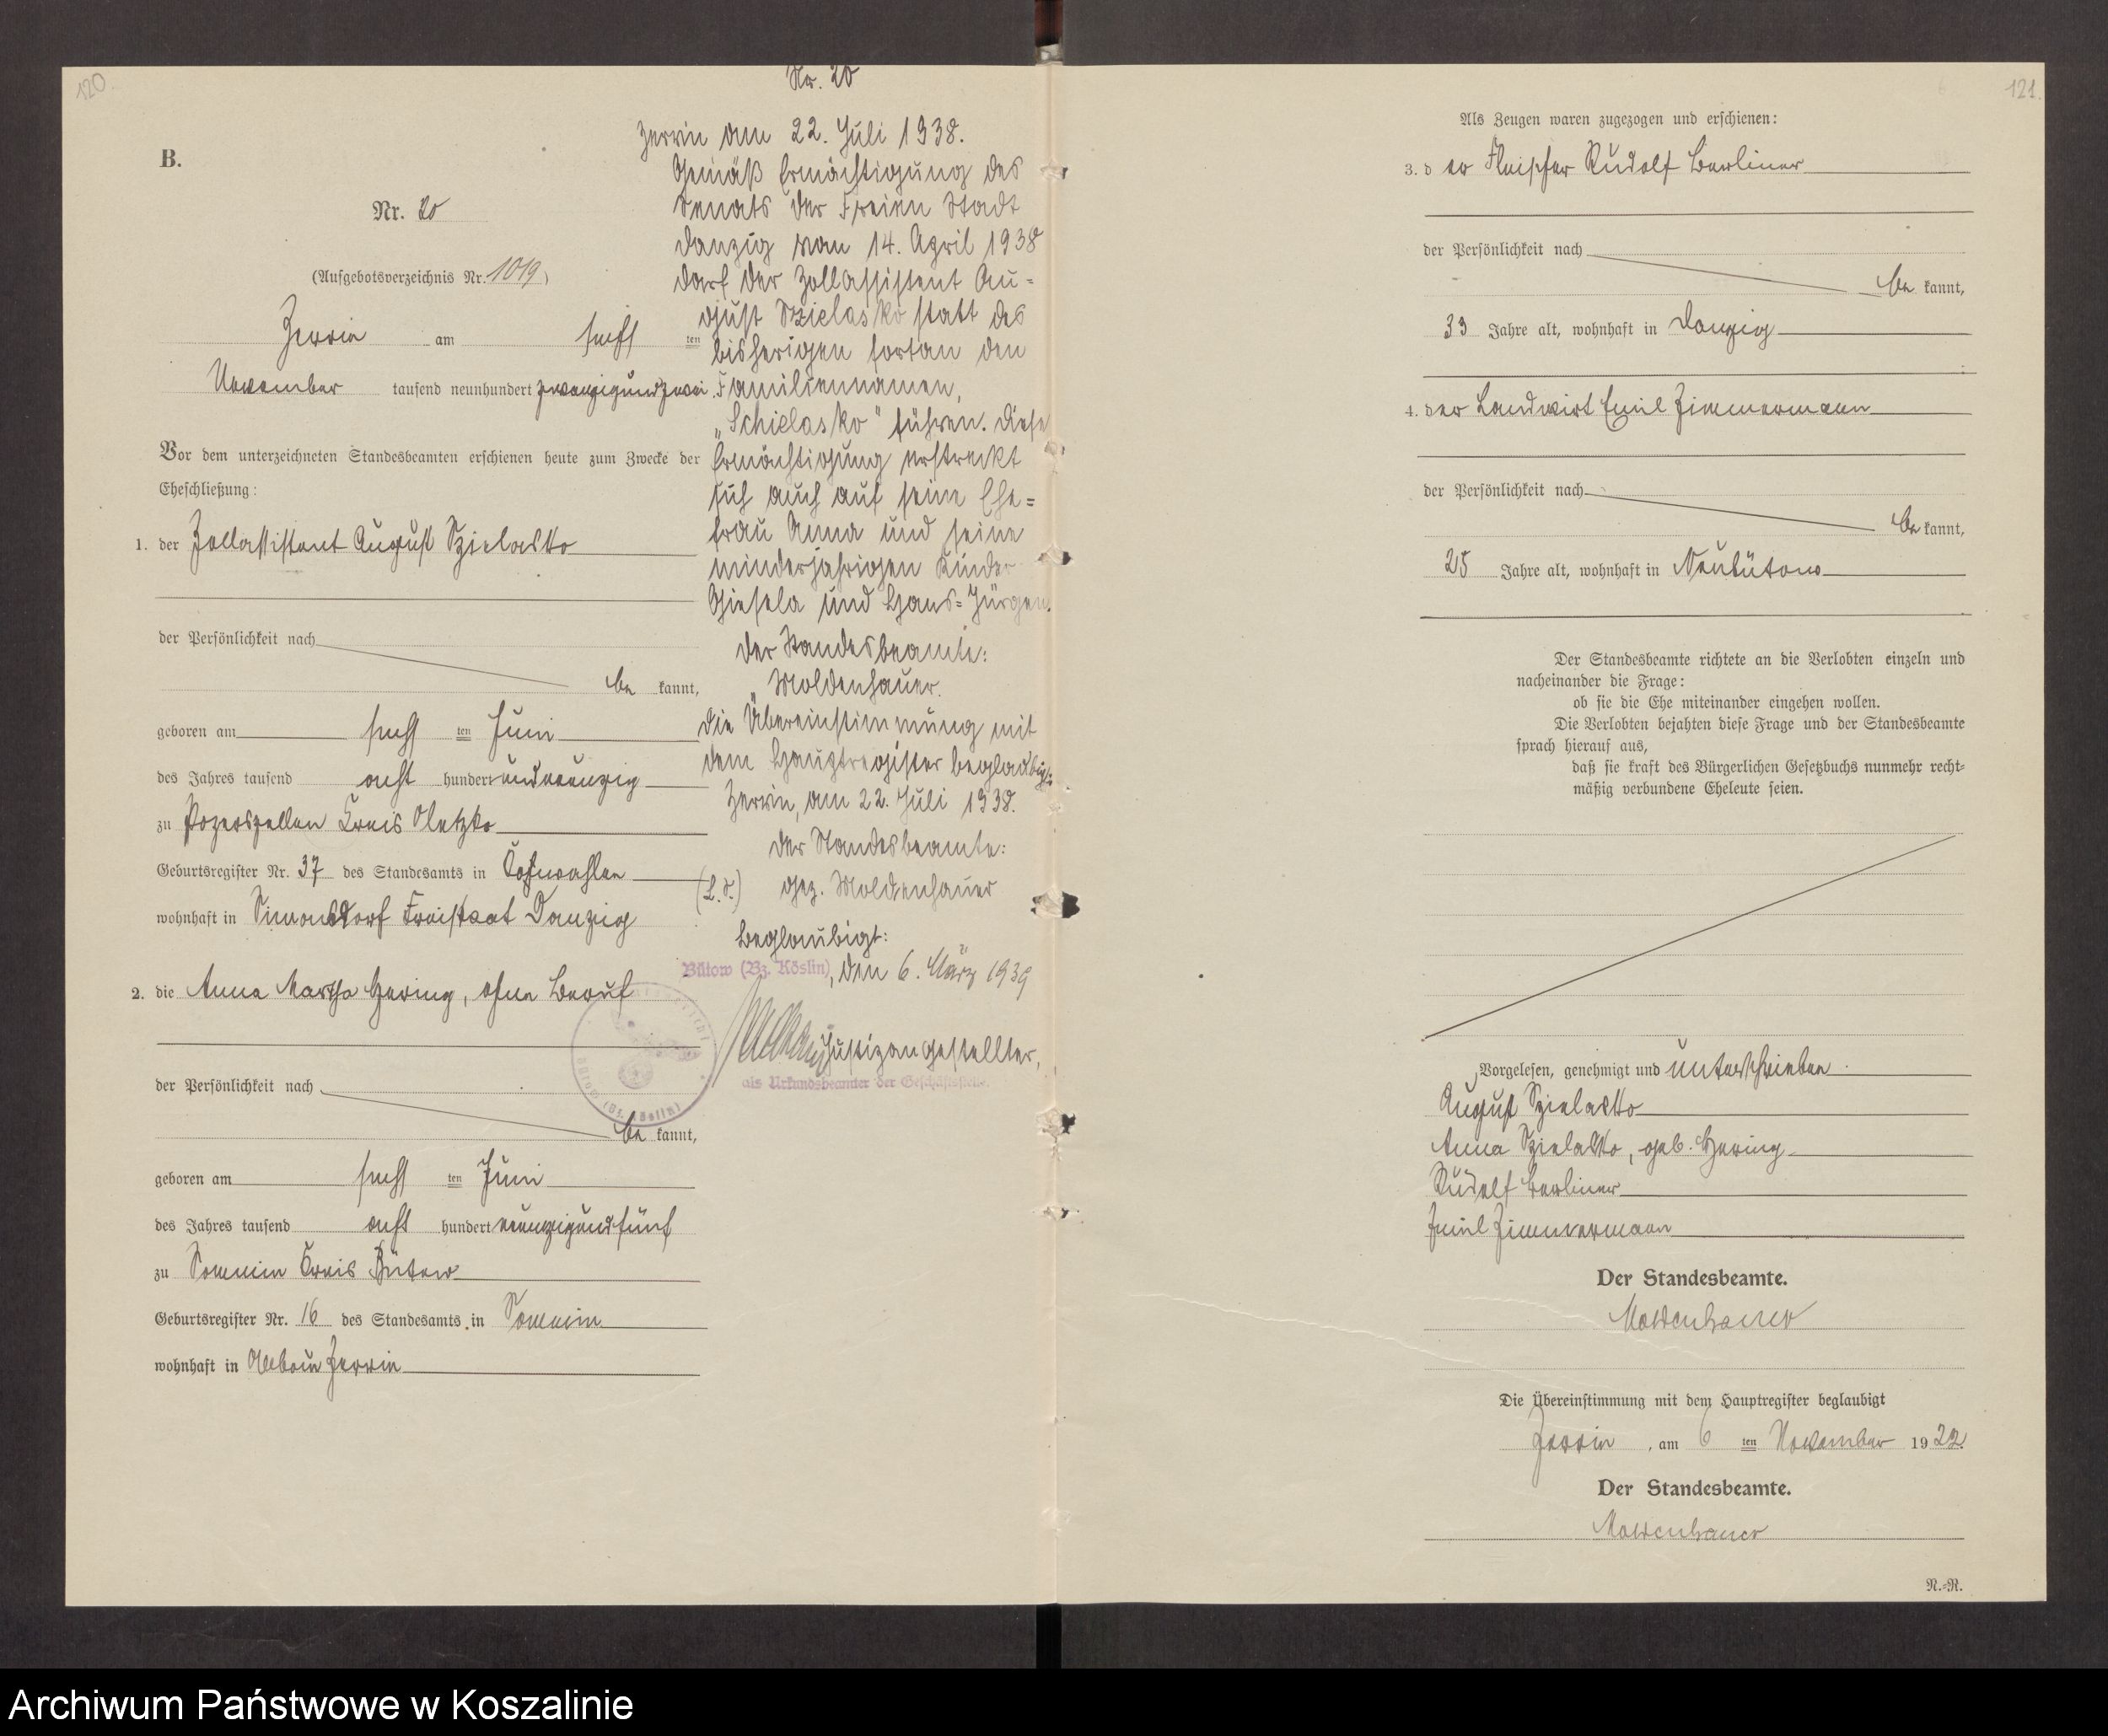 120.
B.
Nr. 20
(Aufgebotsverzeichnis Nr. 1019)
Zerrin am sechs ten
November tausend neunhundert zwanzigundzwei.
Vor dem unterzeichneten Standesbeamten erschienen heute zum Zwecke der
Eheschließung:
1. der Zollassistent August Szielasko
der Persönlichkeit nach
be kannt,
geboren am sechs ten Juni
des Jahres tausend acht hundert undneunzig
zu Kreis Oletzko
Geburtsregister Nr. 37 des Standesamts in
wohnhaft in Simonsdorf Freistaat Danzig
2. die Anna Martha Hering, ohne Beruf
der Persönlichkeit nach
be kannt,
geboren am sechs ten Juni
des Jahres tausend acht hundert neunzigundfünf
zu Sommin Kreis Bütow
Geburtsregister Nr. 16 des Standesamts in Sommin
wohnhaft in Zerrin
Nr. 20
Zerrin am 22. Juli 1938.
Gemäß Ermächtigung des
Senats der Freien Stadt
Danzig vom 14. April 1938
darf der Zollassistent Au-
gust Szielasko statt des
bisherigen fortan den
Familiennamen,
„Schielasko" führen. Diese
Ermächtigung erstreckt
sich auch auf seine Ehe=
frau Anna und seine
minderjährigen Kinder
Giesela und Hans=Jürgen.
Der Standesbeamte:
Moldenhauer.
Die Übereinstimmung mit
dem Hauptregister beglaubigt:
Zerrin, am 22. Juli 1938.
Der Standesbeamte:
(L.S.) gez. Moldenhauer
Beglaubigt:
Bütow (Bz. Köslin), den 6. März 1939
Justizangestellter,
als Urkundsbeamter der Geschäftsstelle.
121.
Als Zeugen waren zugezogen und erschienen:
3. d er Fleischer Rudolf Berliner
der Persönlichkeit nach
be kannt,
33 Jahre alt, wohnhaft in Danzig
4. der Landwirt Emil Zimmermann
der Persönlichkeit nach
be kannt,
25 Jahre alt, wohnhaft in Neubütow
Der Standesbeamte richtete an die Verlobten einzeln und
nacheinander die Frage:
ob sie die Ehe miteinander eingehen wollen.
Die Verlobten bejahten diese Frage und der Standesbeamte
sprach hierauf aus,
daß sie kraft des Bürgerlichen Gesetzbuchs nunmehr recht-
mäßig verbundene Eheleute seien.
Vorgelesen, genehmigt und unterschrieben
August Szielasko
Anna Szielasko, geb. Hering
Rudolf Berliner
Emil Zimmermann
Der Standesbeamte.
Moldenhauer
Die Übereinstimmung mit dem Hauptregister beglaubigt
Zerrin, am 6 ten November 1922.
Der Standesbeamte.
Moldenhauer
N.=R.
Archiwum Państwowe w Koszalinie